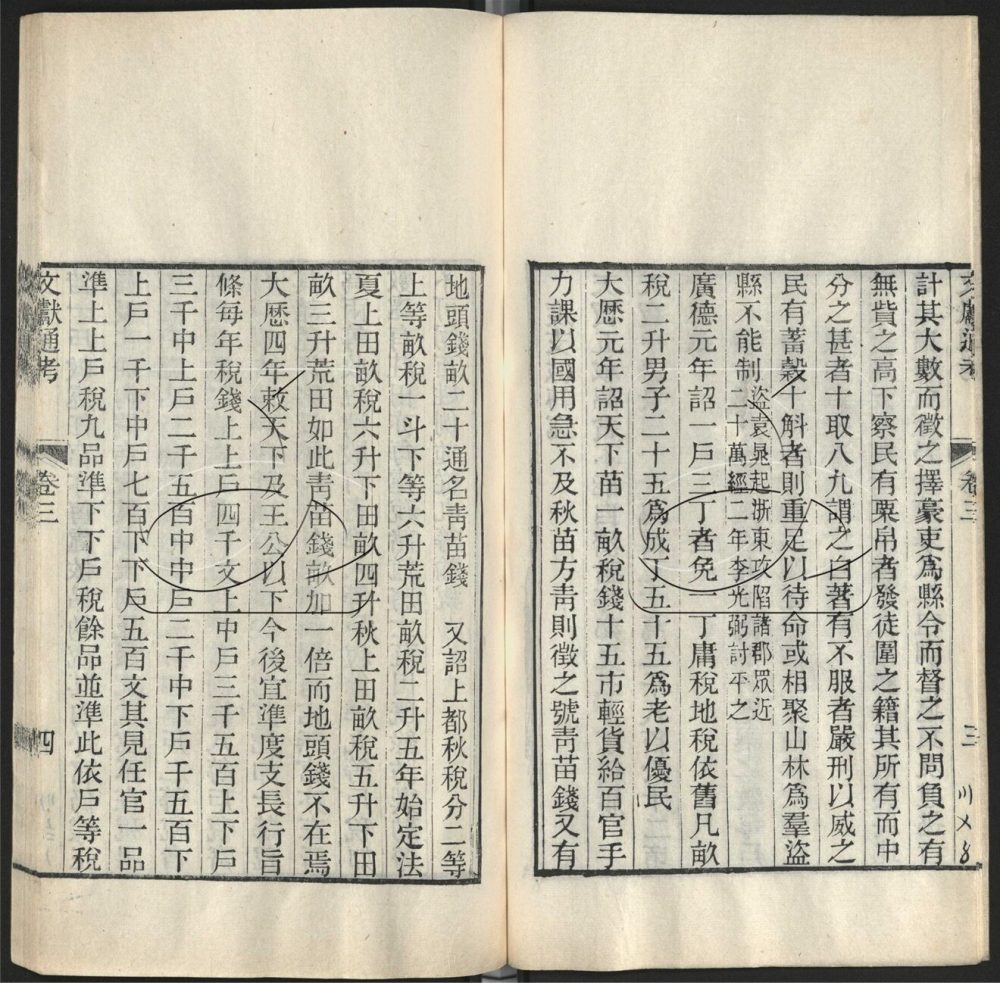 文獻通考 卷三 三
計其大數而徵之擇豪吏爲縣令而督之不問負之有
無貲之高下察民有粟帛者發徒圍之籍其所有而中
分之甚者十取八九謂之白著有不服者嚴刑以威之
民有蓄穀十斛者則重足以待命或相聚山林爲羣盜
縣不能制盜袁晁起浙東攻陷諸郡眾近
二十萬經二年李光弼討平之
廣德元年詔一戶三丁者免一丁庸稅地稅依舊凡畝
稅二升男子二十五爲成丁五十五爲老以優民
大歷元年詔天下苗一畝稅錢十五市輕貨給百官手
力課以國用急不及秋苗方靑則徵之號靑苗錢又有
地頭錢畝二十通名靑苗錢 又詔上都秋稅分二等
上等畝稅一斗下等六升荒田畝稅二升五年始定法
夏上田畝稅六升下田畝四升秋上田畝稅五升下田
畝三升荒田如此靑苗錢畝加一倍而地頭錢不在焉
大歷四年敕天下及王公以下今後宜準度支長行旨
條每年稅錢上上戶四千文上中戶三千五百上下戶
三千中上戶二千五百中中戶二千中下戶千五百下
上戶一千下中戶七百下下戶五百文其見任官一品
準上上戶稅九品準下下戶稅餘品並準此依戶等稅
文獻通考 卷三 四